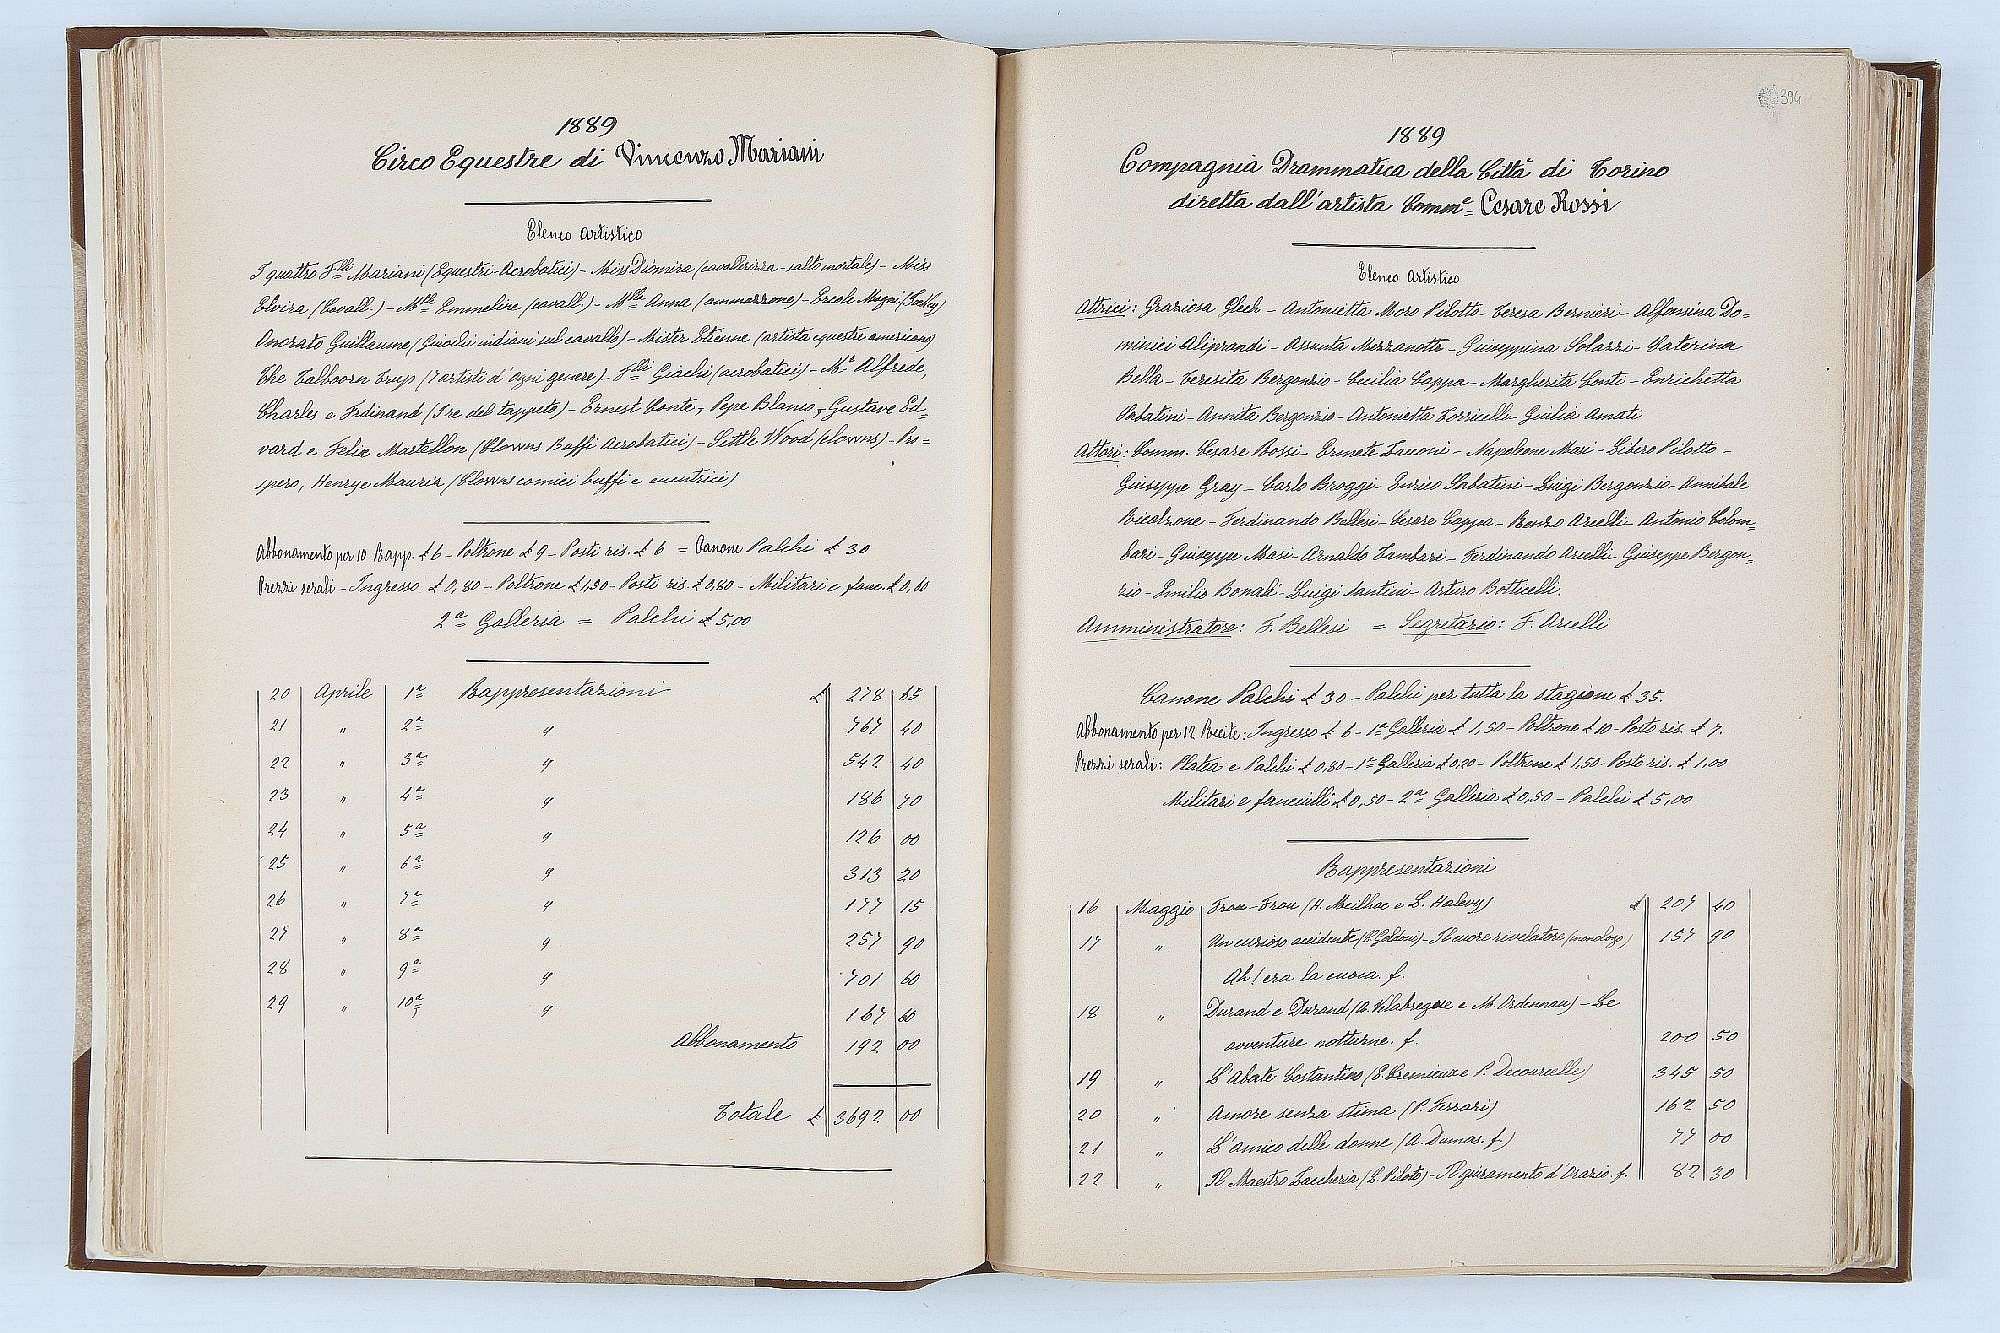 1889
Circo Equestre di Vincenzo Mariani
Elenco Artistico
I quattro F.lli Mariani (Equestri-Acrobatici) - Miss Diomira (cavallerizza - salto mortale) - Miss
Elvira (Cavall.) - M.lle Emmeline (cavall.) - M.lle Anna (amazzone) - Ercole Magni (Jockey)
Onorato Guillaume (Giochi indiani sul cavallo) - Mister Etienne (artista equestre americano)
The Talboorn Trup (7 artisti d'ogni genere) - F.lli Giachi (acrobatici) - M.r Alfrede,
Charles e Ferdinand (I re del tappeto) - Ernest Conte, Pepe Blanco, Gustave Ed=
vard e Felix Mastellon (Clowns Buffi Acrobatici) - Little Wood (clowns) - Pro=
spero, Henry e Mauria (Clowns comici buffi e eccentrici)
Abbonamento per 10 Rapp. £ 6 - Poltrone £ 9 - Posti ris. £ 6 = Canone Palchi £ 30
Prezzi serali - Ingresso £ 0,80 - Poltrone £ 1,50 - Posti ris. £ 0,80 - Militari e fanc. £
2a Galleria = Palchi £ 5,00
20 Aprile 1a Rappresentazioni £ 278 65
21 " 2a " 767 40
22 " 3a " 542 40
23 " 4a " 186 70
24 " 5a " 126 00
25 " 6a " 313 20
26 " 7a " 177 15
27 " 8a " 257 90
28 " 9a " 701 60
29 " 10a " 167 60
Abbonamento 192 00
Totale £ 3692 00
394
1889
Compagnia Drammatica della Città di Torino
diretta dall'artista Comm.e Cesare Rossi
Elenco Artistico
Attrici: Graziosa Glech - Antonietta Moro Pilotto - Teresa Bernieri - Alfonsina Do=
minici Aliprandi - Assunta Mezzanotte - Giuseppina Solazzi - Caterina
Bella - Teresita Bergonzio - Cecilia Cappa - Margherita Conti - Enrichetta
Sabatini - Annita Bergonzio - Antonietta Torricelli - Giulia Amati
Attori: Comm. Cesare Rossi - Ermete Zacconi - Napoleone Masi - Libero Pilotto -
Giuseppe Gray - Carlo Broggi - Enrico Sabatini - Luigi Bergonzio - Annibale
Ricalzone - Ferdinando Bellesi - Cesare Cappa - Renzo Arcelli - Antonio Colom=
bari - Giuseppe Masi - Arnaldo Zambari - Ferdinando Arcelli - Giuseppe Bergon=
zio - Emilio Bonali - Luigi Santini - Arturo Botticelli.
Amministratore: F. Bellesi = Segretario: F. Arcelli
Canone Palchi £ 30 - Palchi per tutta la stagione £ 35.
Abbonamento per 12 Recite: Ingresso £ 6 - 1a Galleria £ 1,50 - Poltrone £ 10 - Posto ris. £ 7.
Prezzi serali: Platea e Palchi £ 0,80 - 1a Galleria £ 0,20 - Poltrone £ 1,50 - Posto ris. £ 1,00
Militari e fanciulli £ 0,50 - 2a Galleria £ 0,50 - Palchi £ 5,00
Rappresentazioni
16 Maggio Frou-Frou (H. Meilhac e L. Halevy) £ 207 40
17 " Un curioso accidente (C. Goldoni) - Il cuore rivelatore (monologo) 157 90
Ah! era la cuoca. f.
18 " Durand e Durand (A. Valabregue e M. Ordennau) - Le
avventure notturne. f. 200 50
19 " L'Abate Costantino (E. Cremieux e P. Decourcelle) 345 50
20 " Amore senza stima (P. Ferrari) 162 50
21 " L'amico delle donne (A. Dumas. f.) 77 00
22 " Il Maestro Zaccheria (L. Piloto) - Il giuramento d'Orazio. f. 82 30